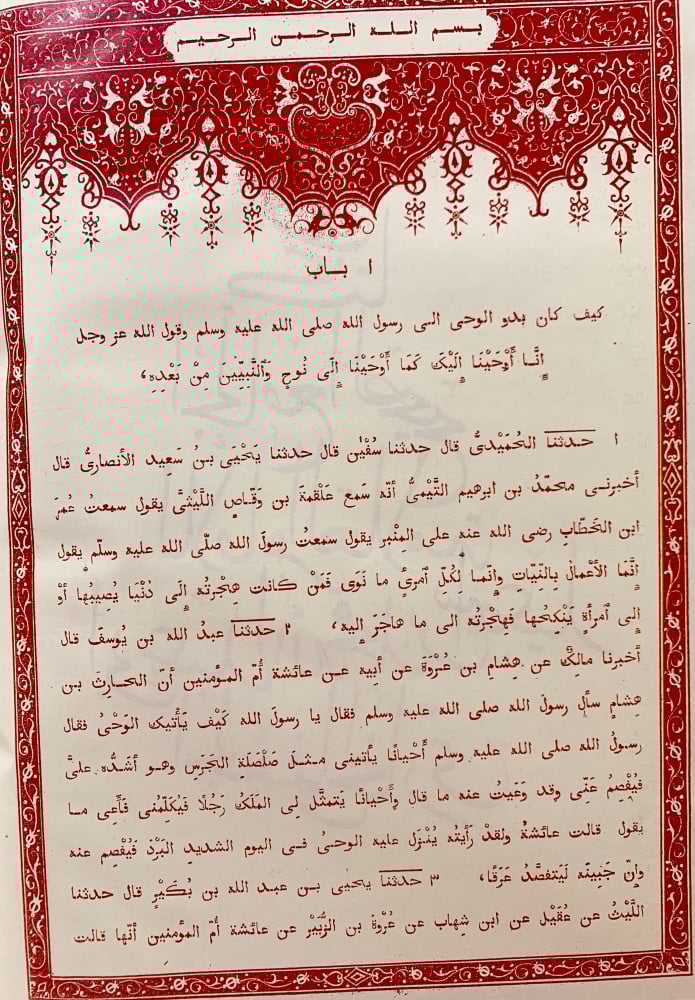 بسم الله الرحمن الرحيم
١ باب
كيف كان بدو الوحى الى رسول الله صلى الله عليه وسلم وقول الله عز وجل
إِنَّا أَوْحَيْنَا إِلَيْكَ كَمَا أَوْحَيْنَا إِلَى نُوحٍ وَٱلنَّبِيِّينَ مِنْ بَعْدِهِ،
١ حدثنا الحُمَيْدىُّ قال حدثنا سُفْيٰن قال حدثنا يَحْيَى بنُ سَعِيد الأنصارىُّ قال
أخبرنى محمّدُ بن ابرهيم التَّيْمىُّ أنّه سَمع عَلْقمةَ بن وَقّاصٍ اللَّيْثىَّ يقول سمعتُ عُمَرَ
ابن الخَطّابِ رضى الله عنه على المِنْبر يقول سَمعتُ رسولَ الله صلّى الله عليه وسلّم يقول
إنَّمَا الأَعْمالُ بِالنِّيّاتِ وإنَّما لِكُلّ ٱمرئٍ ما نَوَى فَمَنْ كانت هِجْرتُه إلَى دُنْيَا يُصِيبُها أوْ
إلى ٱمرأةٍ يَنْكِحُها فَهِجْرتُه الى ما هاجَرَ إليه، ٢ حدثنا عبدُ الله بن يُوسفَ قال
أخبرنا مالِكٌ عن هِشامِ بن عُرْوَةَ عن أبيه عن عائشة أُمّ المؤمنين أنّ الحارِثَ بن
هِشامٍ سأل رسولَ الله صلى الله عليه وسلم فقال يا رسولَ الله كَيْفَ يَأْتيك الوَحْىُ فقال
رسولُ الله صلى الله عليه وسلم أَحْيانًا يأتينى مثلَ صَلْصَلةِ الجَرَس وهو أشَدُّه علىَّ
فَيُفْصِمُ عَنِّى وقد وَعَيتُ عنه ما قال وأَحْيانًا يَتمثّلُ لى المَلَكُ رَجُلًا فَيُكَلّمُنى فَأَعِى ما
يقول قالت عائشةُ ولقدْ رأيتُه يُنْزَل عليه الوحىُ فى اليوم الشديد البَرْدَ فَيُفْصِم عنه
وإنّ جَبِينَه لَيَتفصَّدُ عَرَقًا، ٣ حدثنا يحيى بن عبد الله بن بُكَيْرٍ قال حدثنا
اللَّيْثُ عن عُقَيْلٍ عن ابن شِهاب عن عُرْوةَ بن الزُّبَيْر عن عائشة أُمّ المؤمنين أنّها قالت